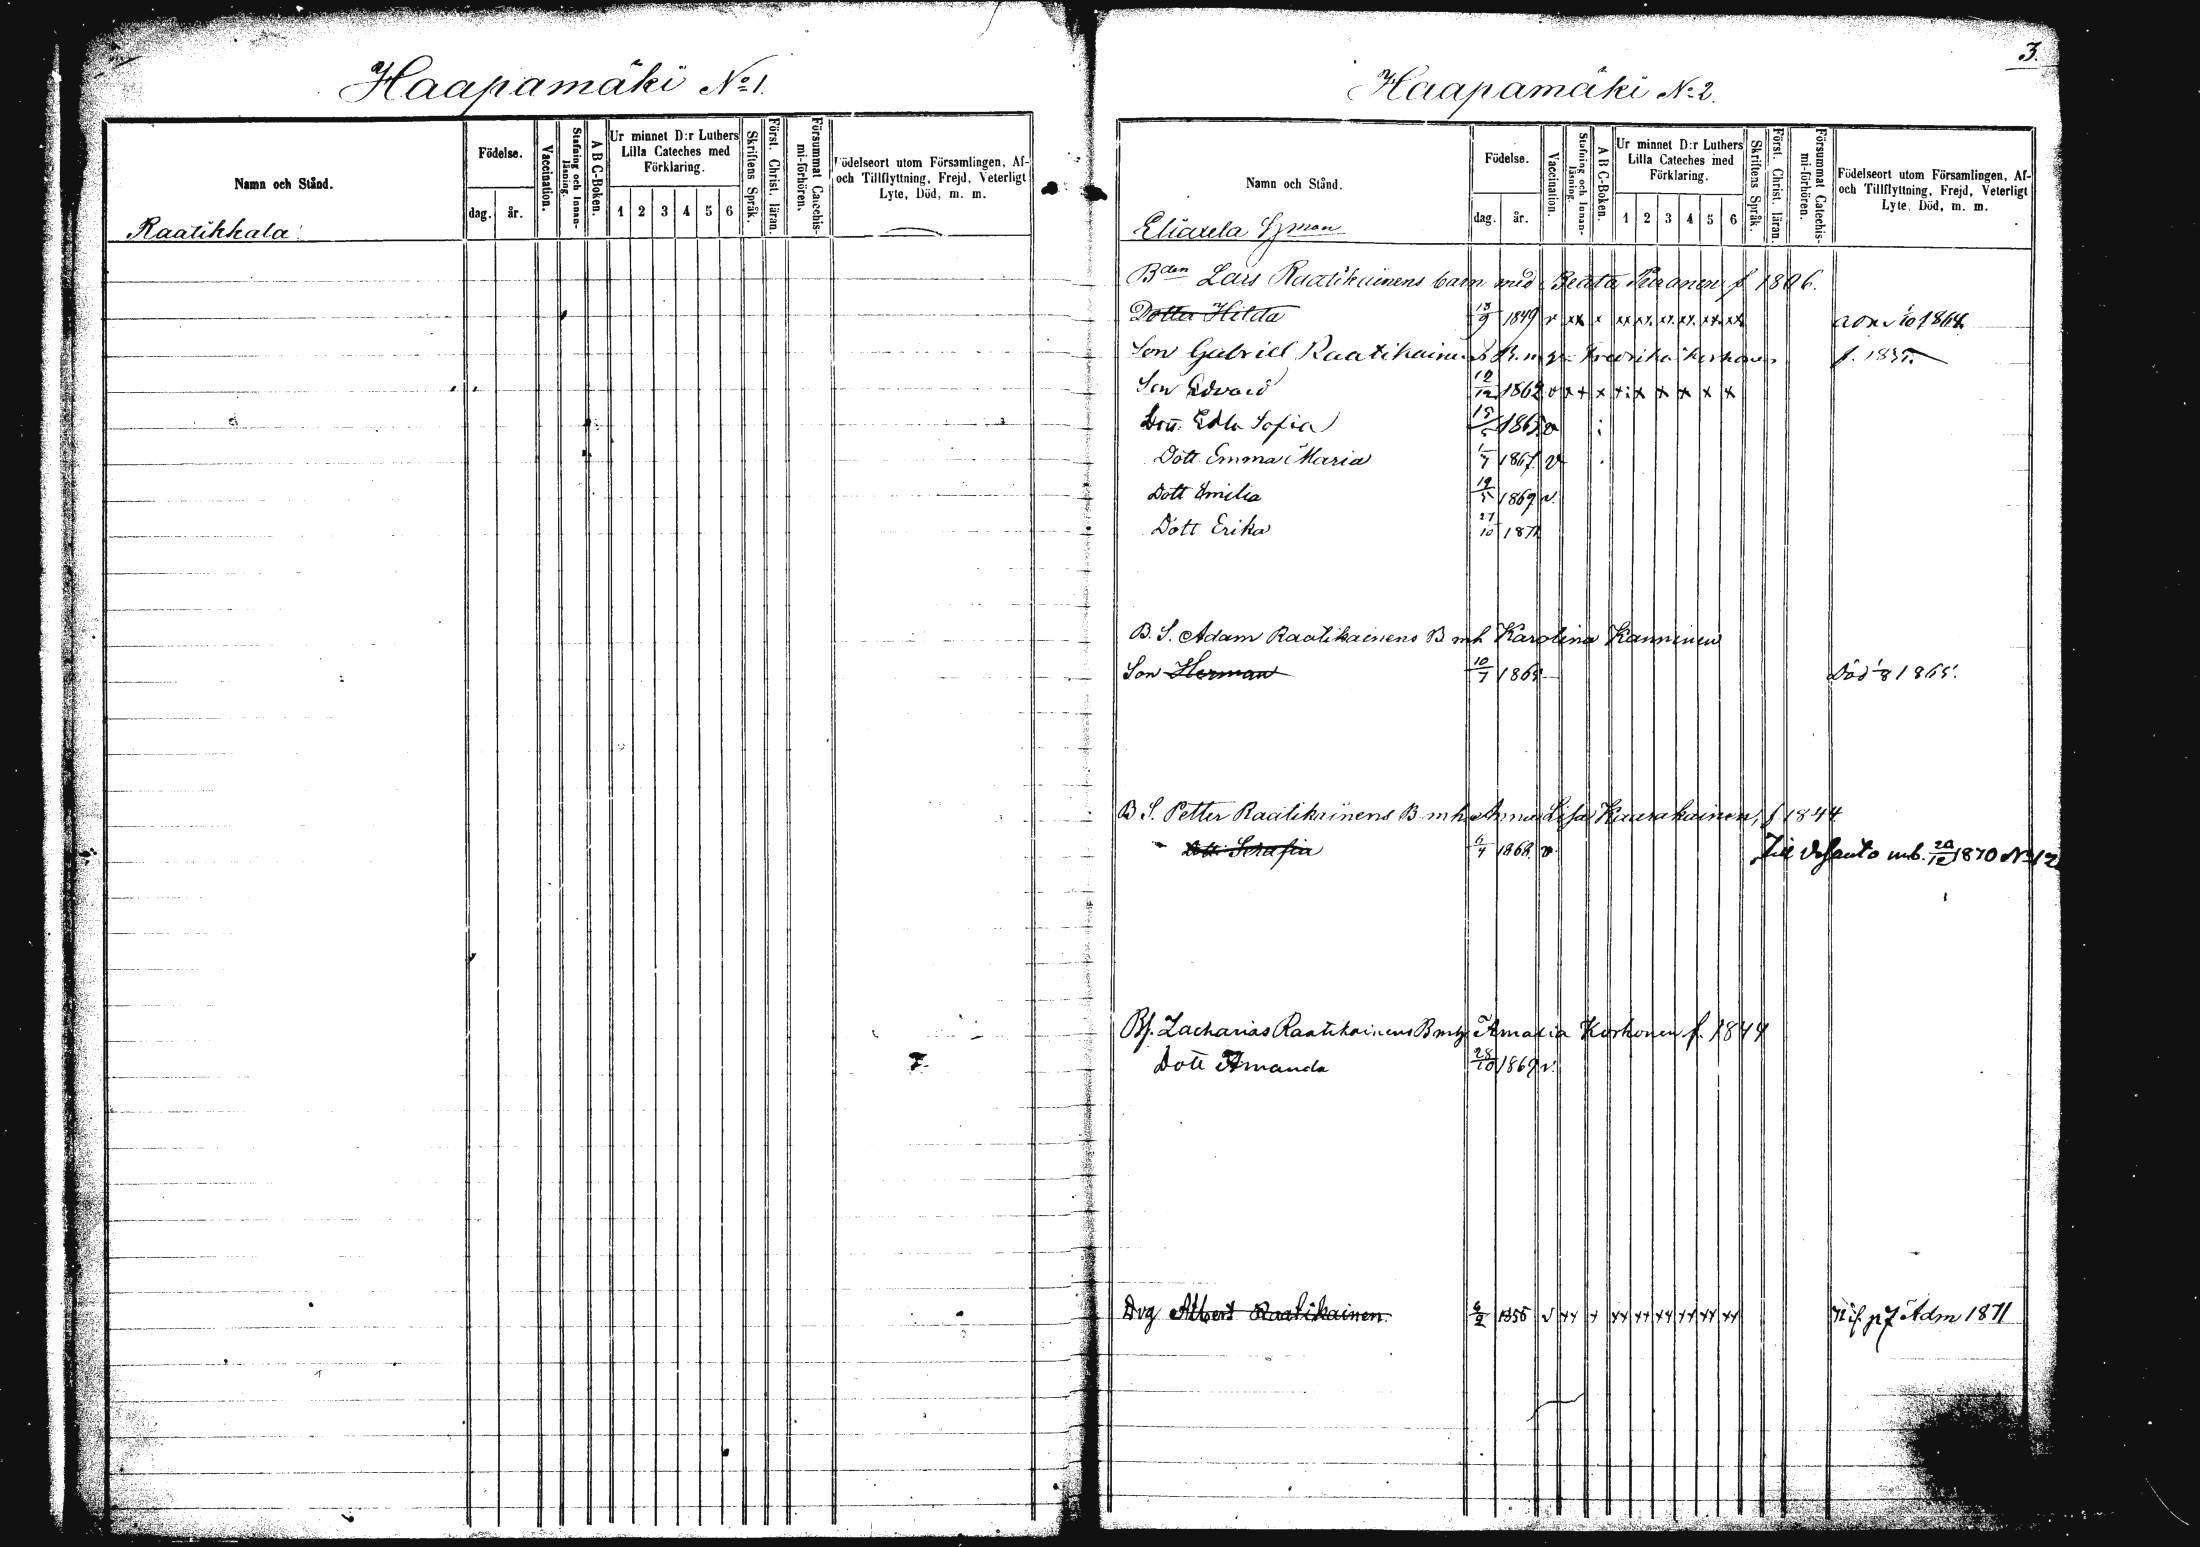 Haapamäki No 1.
Namn och Stånd.
Födelse.
dag.
år.
Vaccination.
Stafning och Innan-läsning.
A B C-Boken.
Ur minnet D:r Luthers
Lilla Cateches med
Förklaring.
1 2 3 4 5 6
Skriftens Språk.
Först. Christ. läran.
Försummat Catechis-mi-förhören.
Födelseort utom Församlingen, Af-
och Tillflyttning, Frejd, Veterligt
Lyte, Död, m. m.
Raatikkala
3.
Haapamäki No 2.
Namn och Stånd.
Födelse.
dag.
år.
Vaccination.
Stafning och Innan-läsning.
A B C-Boken.
Ur minnet D:r Luthers
Lilla Cateches med
Förklaring.
1 2 3 4 5 6
Skriftens Språk.
Först. Christ. läran.
Försummat Catechis-mi-förhören.
Födelseort utom Församlingen, Af-
och Tillflyttning, Frejd, Veterligt
Lyte, Död, m. m.
Bden Lars Raatikainens barn med Beata f 1806.
Dotter Hilda 1849 v xx x xx xx xx xx xx xx 1868
Son Gabriel Raatikainens B. m. Fredrika f. 1835.
Son Edvard 12/12 1862 v x+ x x x x x x
Dott. Edla Sofia 1865 v
Dott Emma Maria 1/7 1867 v
Dott Emilia 19/5 1869 v.
Dott Erika 27/10 1871
B. S. Adam Raatikainens B mh Karolina Kanninen
Son Herman 10/7 1865 Död 1/8 1865.
B S. Petter Raatikainens B mh Anna Lisa Kaurakainen, f 1844
Dott Serafia 6/4 1868 v Till mb. 20/12 1870 No 12
Bs. Zacharias Raatikainens B mh Amalia Korhonen f. 1844
Dott Amanda 28/10 1869 v.
Drg Albert Raatikainen. 6/2 1856 v xx x xx xx xx xx xx xx p 7 Adm 1871